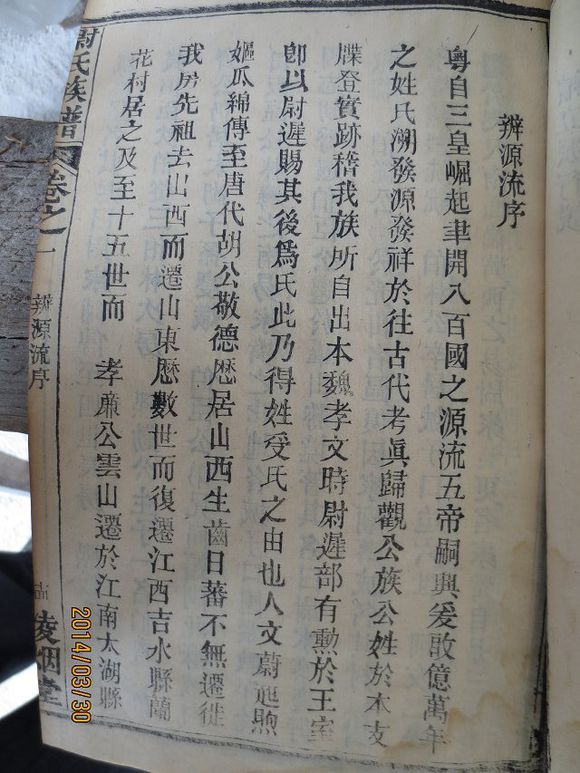 辨源流序
粵自三皇崛起聿開八百國之源流五帝嗣興爰啟億萬年
之姓氏溯發源發祥於往古代考眞歸觀公族公姓於本支
牒登實跡稽我族所自出本魏孝文時尉遲部有勲於王室
卽以尉遲賜其後爲氏此乃得姓受氏之由也人文蔚起煦
嫗瓜綿傳至唐代胡公敬德歴居山西生齒日蕃不無遷徙
我房先祖去山西而遷山東歴數世而復遷江西吉水縣蘭
花村居之及至十五世而 孝廉公雲山遷於江南太湖縣
尉氏族譜 卷之一 辨源流序 凌烟堂
2014/03/30